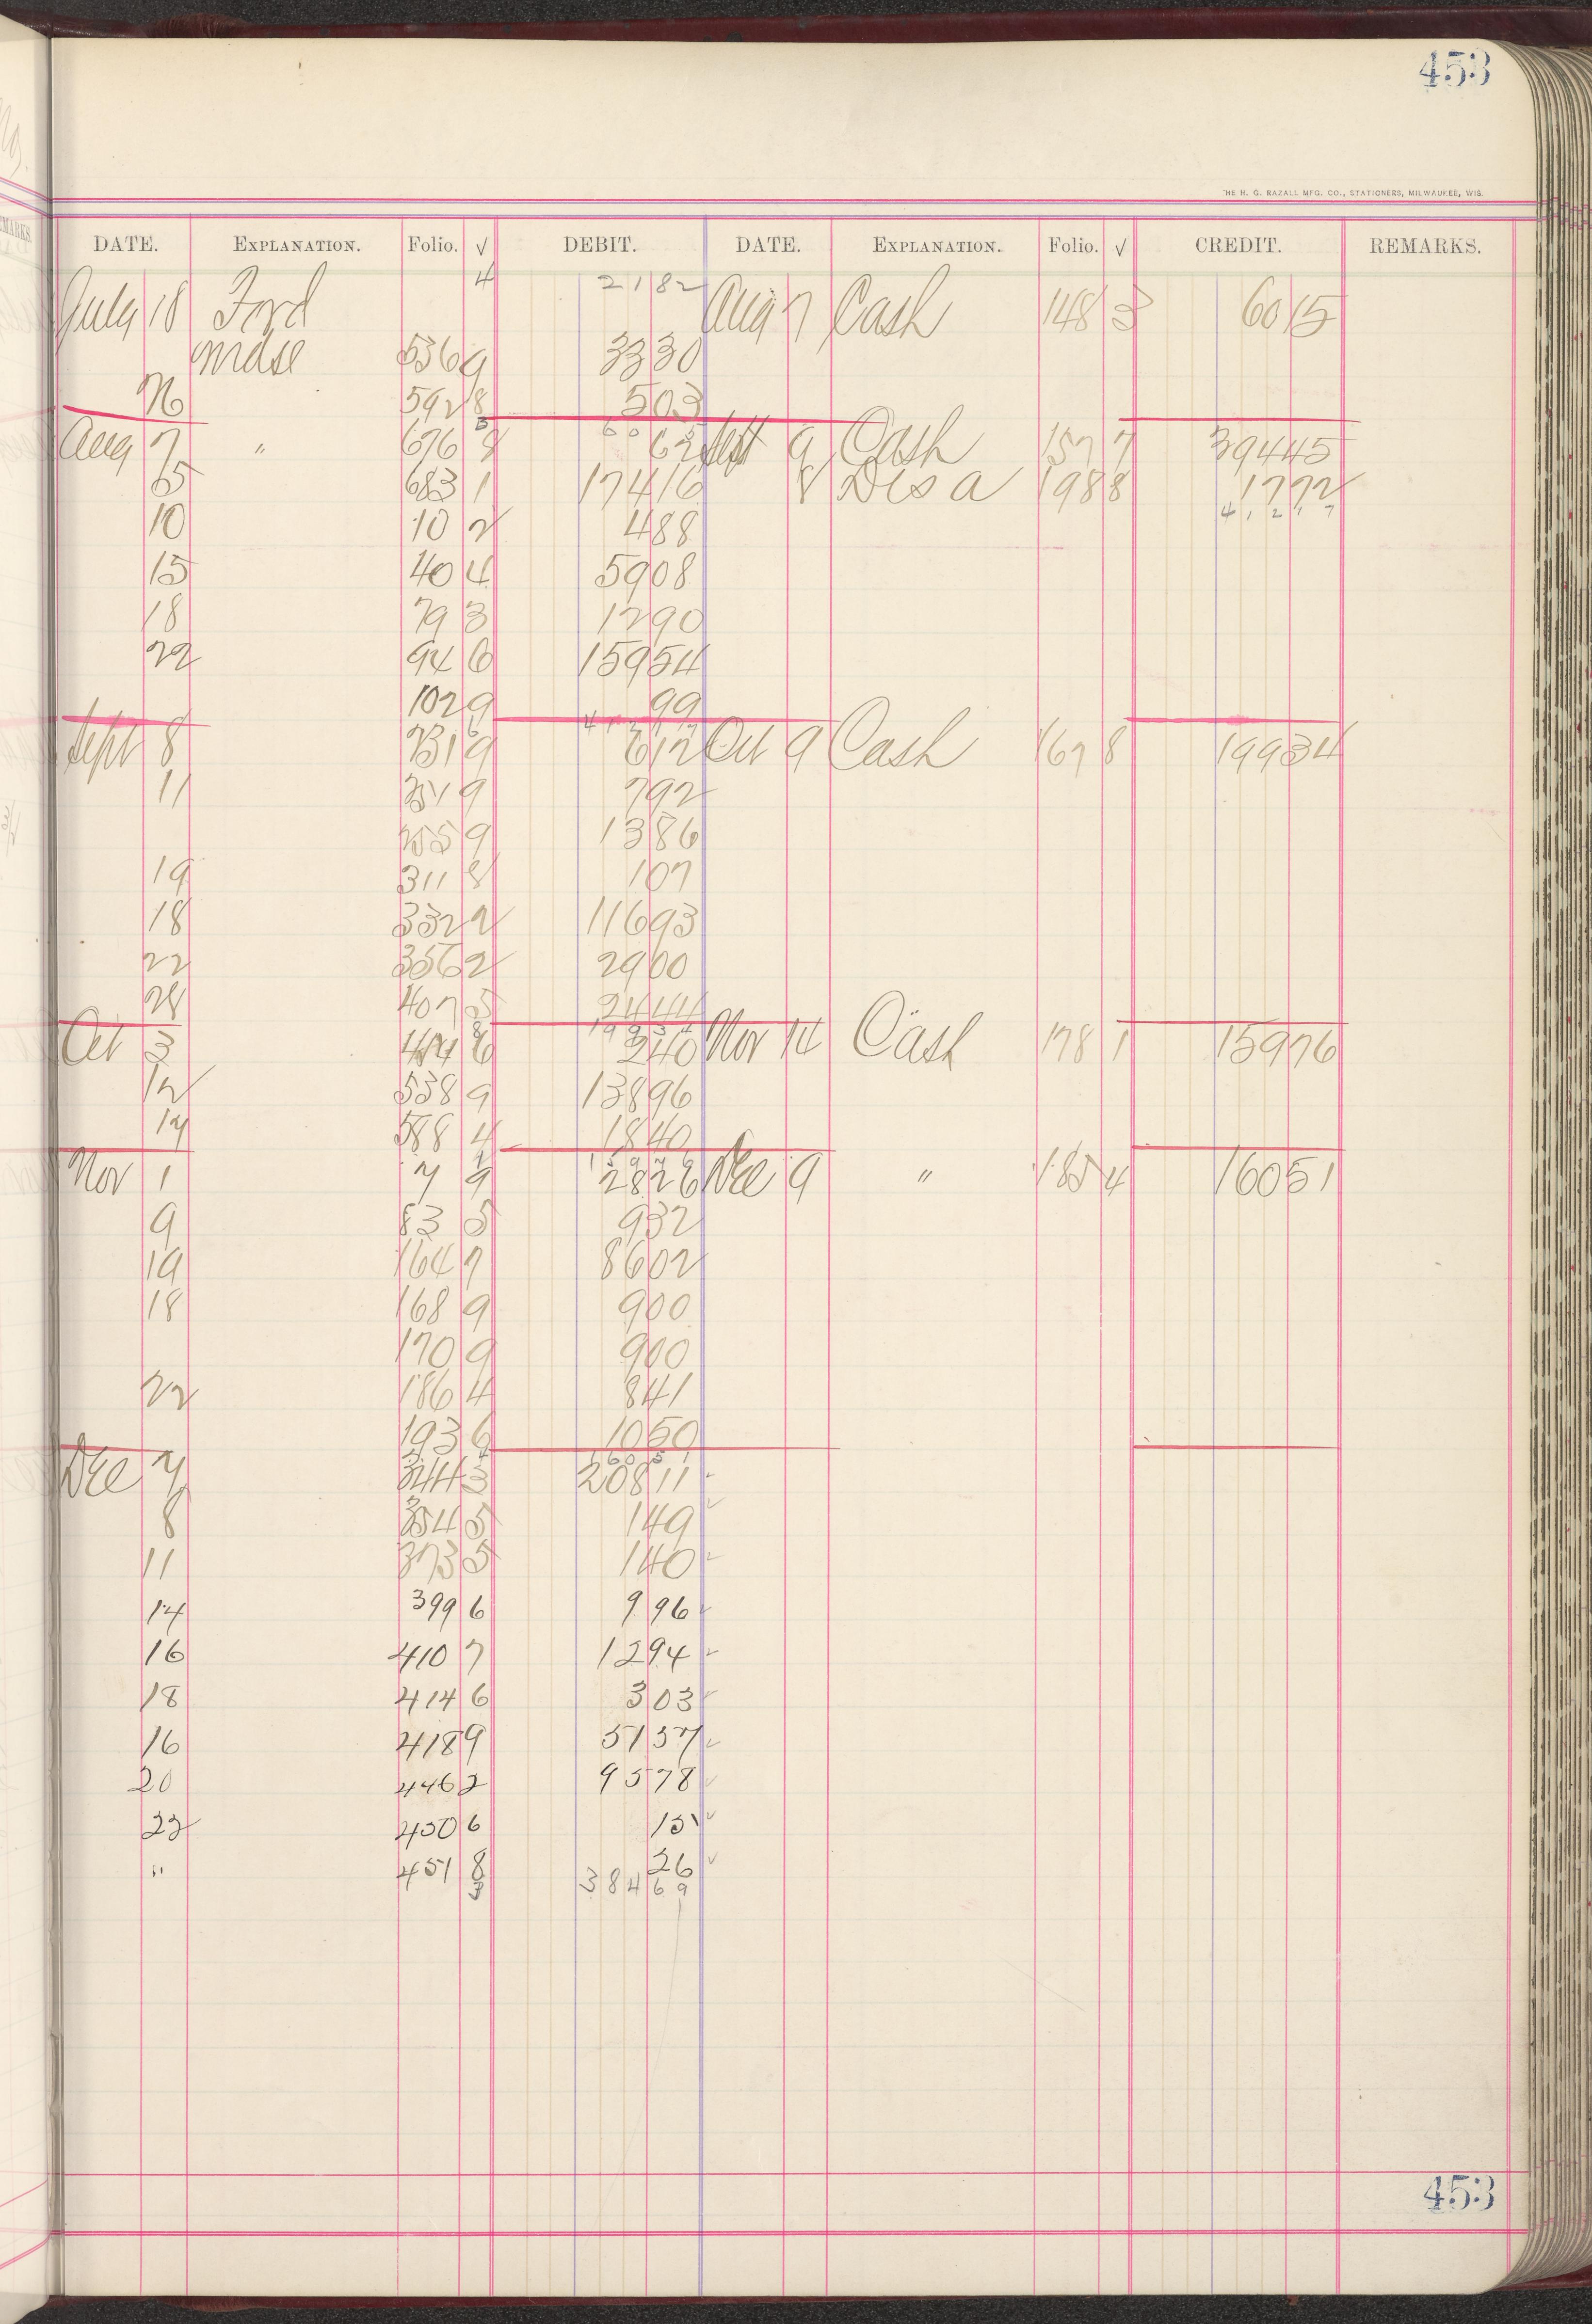 453
THE H. G. RAZALL MFG. CO., STATIONERS, MILWAUKEE, WIS.
DATE. EXPLANATION. Folio. √ DEBIT. DATE. EXPLANATION. Folio. √ CREDIT. REMARKS.
July 18 Ford 4 2182 Aug 7 Cash 148 3 6015
mdse 536 9 3330
26 592 8 503
Aug 7 " 676 8 62 Sept 9 Cash 157 7 39445
683 1 17416 8 Dis a 198 8 1772
10 10 2 488 41217
15 40 4 5908
18 79 3 1290
22 94 6 15954
102 9 99
Sept 8 231 9 612 Oct 9 Cash 167 8 19934
11 9 792
255 9 1386
19 311 8 107
18 332 2 11693
22 356 2 2900
28 407 5 2444
19934
Oct 3 6 240 Nov 14 Cash 178 1 15976
12 538 9 13896
14 588 4 1840
15976
Nov 1 7 9 2826 Dec 9 " 185 4 16051
9 83 5 932
19 164 7 8602
18 168 9 900
170 9 900
22 186 4 841
193 6 1050
16051
Dec 7 344 3 20811
8 354 5 149
11 373 5 140
14 399 6 996
16 410 7 1294
18 414 6 303
16 418 9 5157
20 446 2 9578
22 450 6 15
" 451 8 26
38469
453